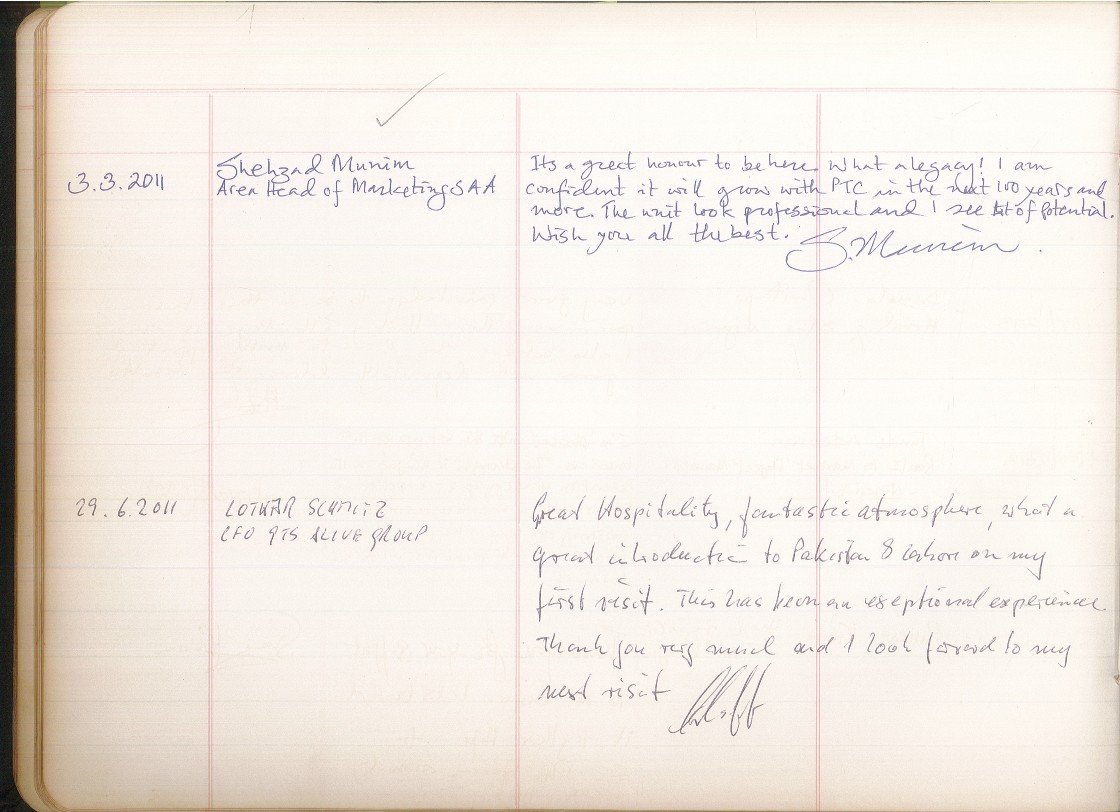 3.3.2011
Shehzad Munim
Area Head of Marketing SAA
Its a great honour to be here. What a legacy! I am
confident it will grow with PTC in the next 100 years and
more. The unit look professional and I see lot of potential.
Wish you all the best.
S. Munim
29.6.2011
LOTHAR SCHMITZ
CFO GTS ALIVE GROUP
Great Hospitality, fantastic atmosphere, what a
great introduction to Pakistan & Lahore on my
first visit. This has been an exeptional experience.
Thank you very much and I look forward to my
next visit